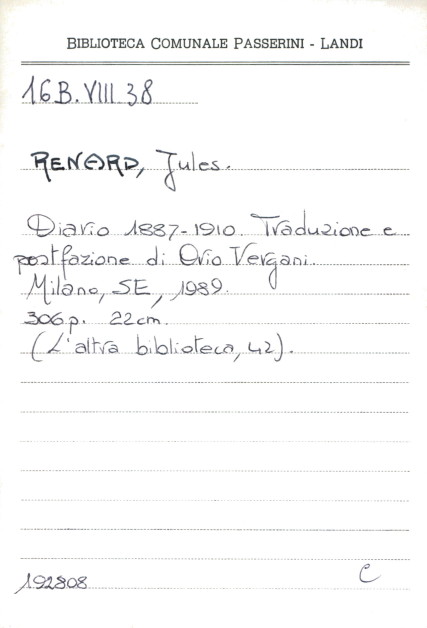 BIBLIOTECA COMUNALE PASSERINI - LANDI
16 B. VIII 38
RENARD, Jules.
Diario 1887-1910. Traduzione e
postfazione di Orio Vergani.
Milano, SE, 1989.
306 p. 22 cm.
(L'altra biblioteca, 42).
192808 C